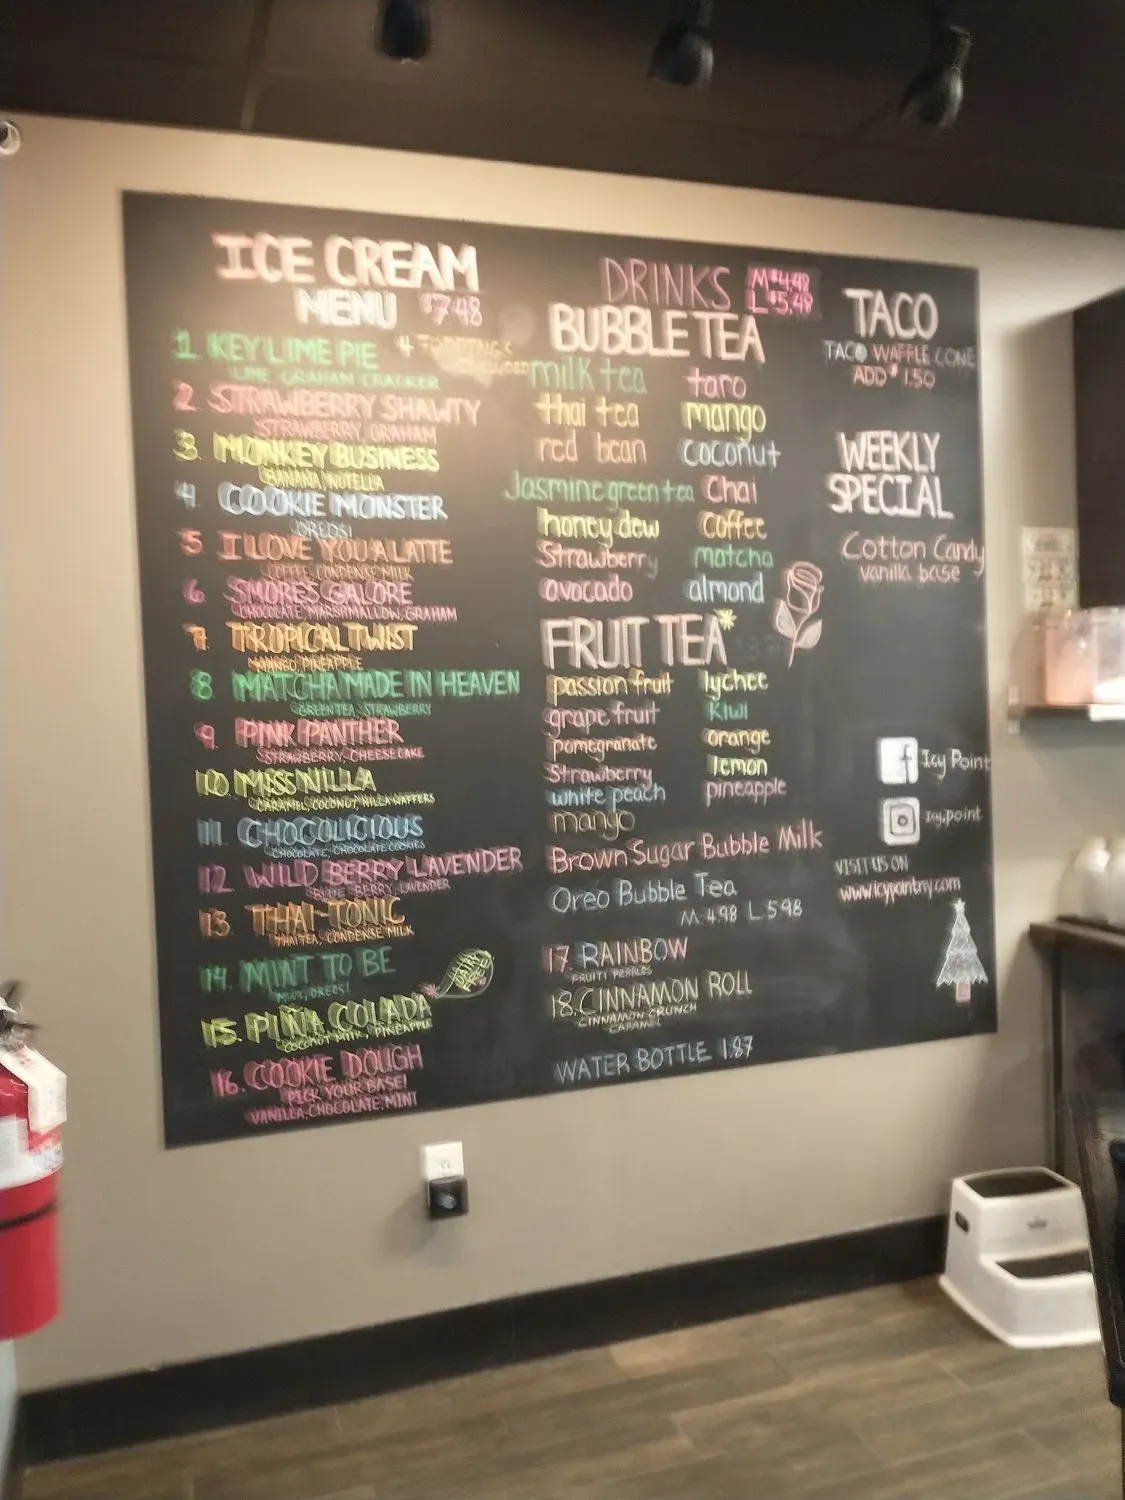 ICE CREAM
MENU $7.48
4 TOPPINGS
INCLUDED
1. KEY LIME PIE
LIME, GRAHAM CRACKER
2. STRAWBERRY SHAWTY
STRAWBERRY, GRAHAM
3. MONKEY BUSINESS
BANANA, NUTELLA
4. COOKIE MONSTER
OREOS!
5. I LOVE YOU A LATTE
COFFEE, CONDENSE MILK
6. SMORES GALORE
CHOCOLATE, MARSHMALLOW, GRAHAM
7. TROPICAL TWIST
MANGO, PINEAPPLE
8. MATCHA MADE IN HEAVEN
GREEN TEA, STRAWBERRY
9. PINK PANTHER
STRAWBERRY, CHEESECAKE
10. MISS NILLA
CARAMEL, COCONUT, NILLA WAFFERS
11. CHOCOLICIOUS
CHOCOLATE, CHOCOLATE COOKIES
12. WILD BERRY LAVENDER
BLUE BERRY, LAVENDER
13. THAI-TONIC
THAI TEA, CONDENSE MILK
14. MINT TO BE
MINT, OREOS!
15. PINA COLADA
COCONUT MILK, PINEAPPLE
DAIRY
FREE!
16. COOKIE DOUGH
PICK YOUR BASE!
VANILLA, CHOCOLATE, MINT
DRINKS M $4.48
L $5.48
BUBBLE TEA
milk tea taro
thai tea mango
red bean coconut
Jasmine green tea Chai
honey dew coffee
Strawberry matcha
avocado almond
FRUIT TEA*
passion fruit lychee
grape fruit Kiwi
pomegranate orange
Strawberry lemon
white peach pineapple
mango
Brown Sugar Bubble Milk
Oreo Bubble Tea
M. 4.98 L. 5.98
17. RAINBOW
FRUITY PEBBLES
18. CINNAMON ROLL
CINNAMON CRUNCH
CARAMEL
WATER BOTTLE 1.87
TACO
TACO WAFFLE CONE
ADD $1.50
WEEKLY
SPECIAL
Cotton Candy
vanilla base
f Icy Point
Icy.point
VISIT US ON
www.icypointny.com